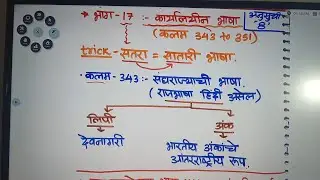 * भाग-17 :- कार्यालयीन भाषा अनुसूची 8
(कलम 343 to 351)
trick - सतरा = सातारी भाषा.
• कलम-343 :- संघराज्याची भाषा.
(राजभाषा हिंदी असेल)
लिपी अंक
देवनागरी भारतीय अंकांचे
आंतरराष्ट्रीय रूप.